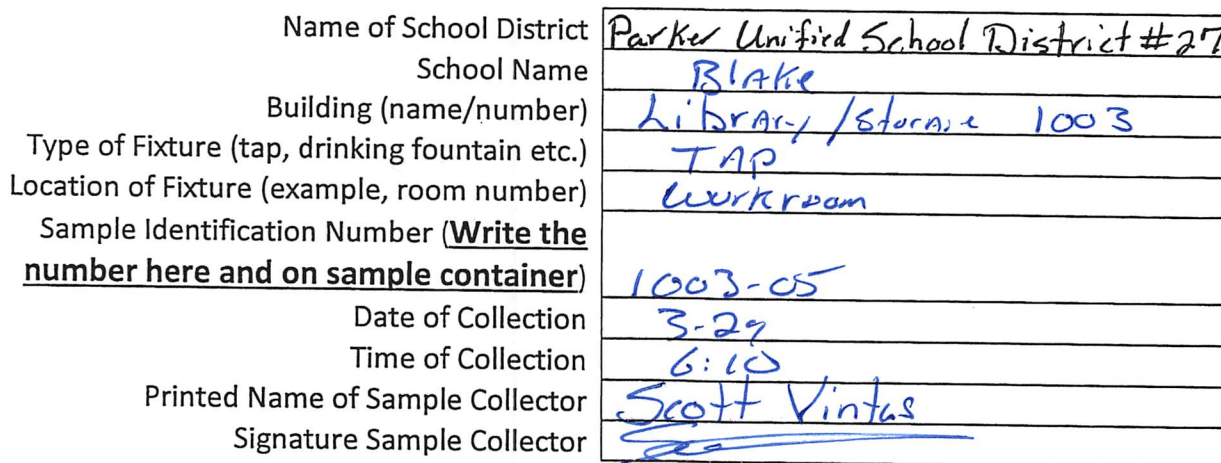 Name of School District Parker Unified School District #27
School Name Blake
Building (name/number) Library/Storage 1003
Type of Fixture (tap, drinking fountain etc.) TAP
Location of Fixture (example, room number) Workroom
Sample Identification Number (Write the
number here and on sample container) 1003-05
Date of Collection 3-29
Time of Collection 6:10
Printed Name of Sample Collector Scott Vintas
Signature Sample Collector